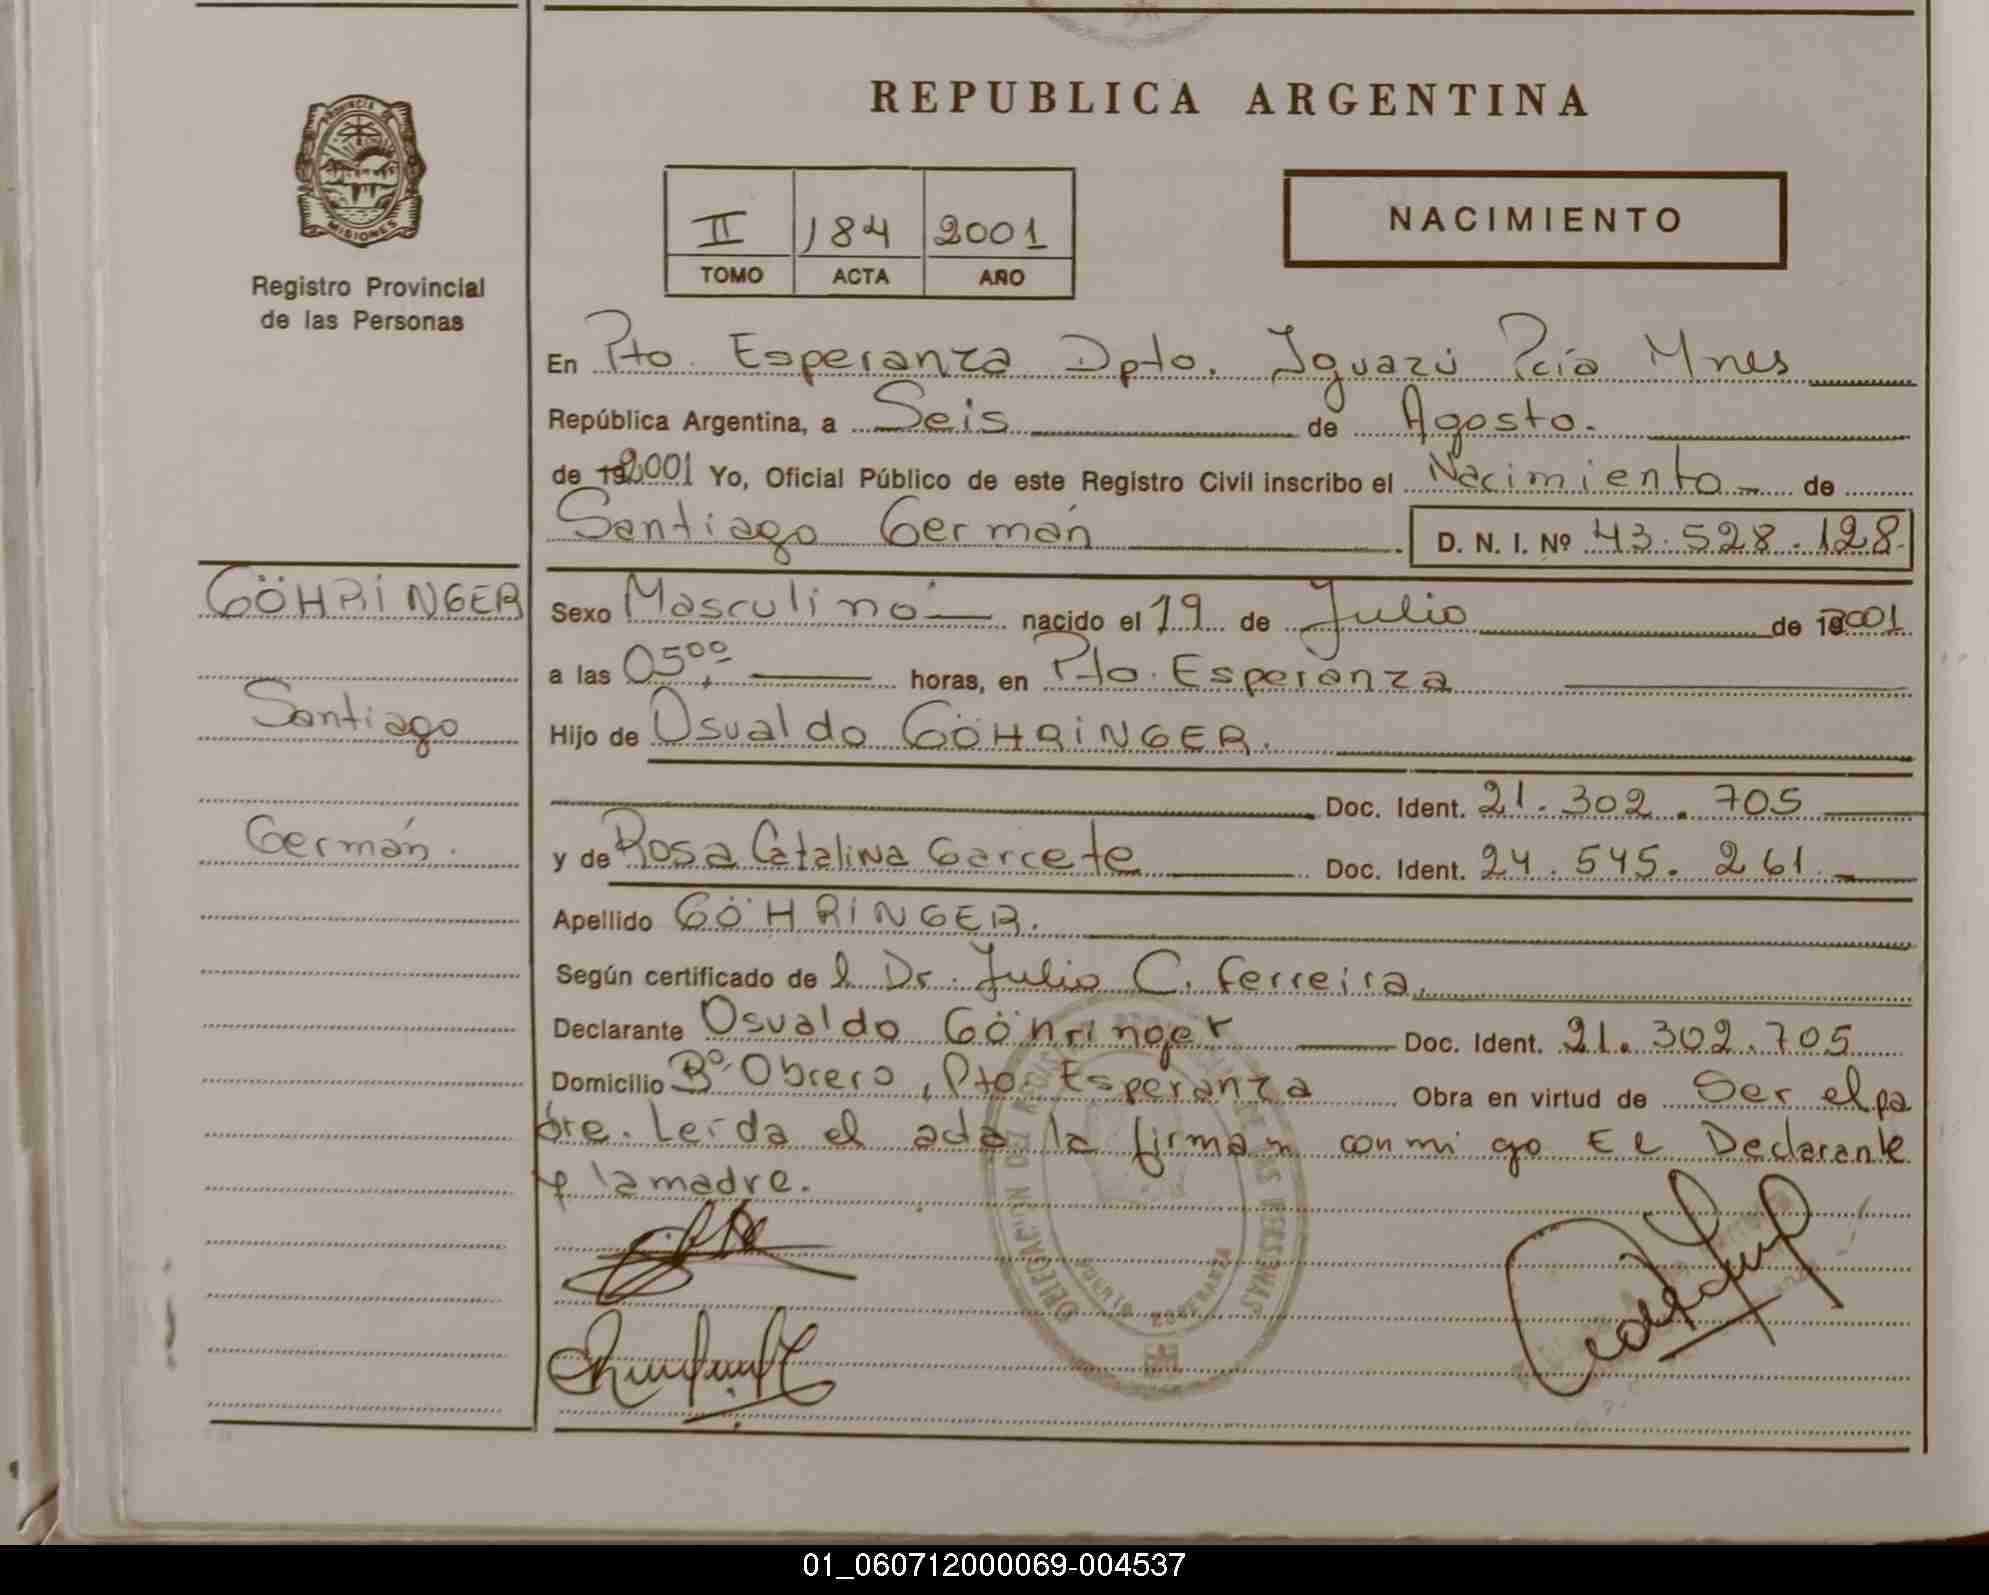 REPUBLICA ARGENTINA
PROVINCIA DE MISIONES
Registro Provincial
de las Personas
II 184 2001
TOMO ACTA AÑO
NACIMIENTO
En Pto. Esperanza Dpto. Iguazú Pcia Mnes
República Argentina, a Seis de Agosto.
de 192001 Yo, Oficial Público de este Registro Civil inscribo el Nacimiento de
Santiago Germán D. N. I. Nº 43.528.128
GÖHRINGER
Santiago
Germán.
Sexo Masculino nacido el 19 de Julio de 192001
a las 05,00 horas, en Pto. Esperanza
Hijo de Osvaldo GÖHRINGER.
Doc. Ident. 21.302.705
y de Rosa Catalina Garcete Doc. Ident. 24.545.261
Apellido GÖHRINGER.
Según certificado de l Dr. Julio C. Ferreira.
Declarante Osvaldo Göhringer Doc. Ident. 21.302.705
Domicilio Bº Obrero, Pto. Esperanza Obra en virtud de Ser el pa
dre. Leida el acta la firman conmigo El Declarante
y la madre.
DELEGACION DEL REGISTRO DE LAS PERSONAS
PUERTO ESPERANZA
01_060712000069-004537